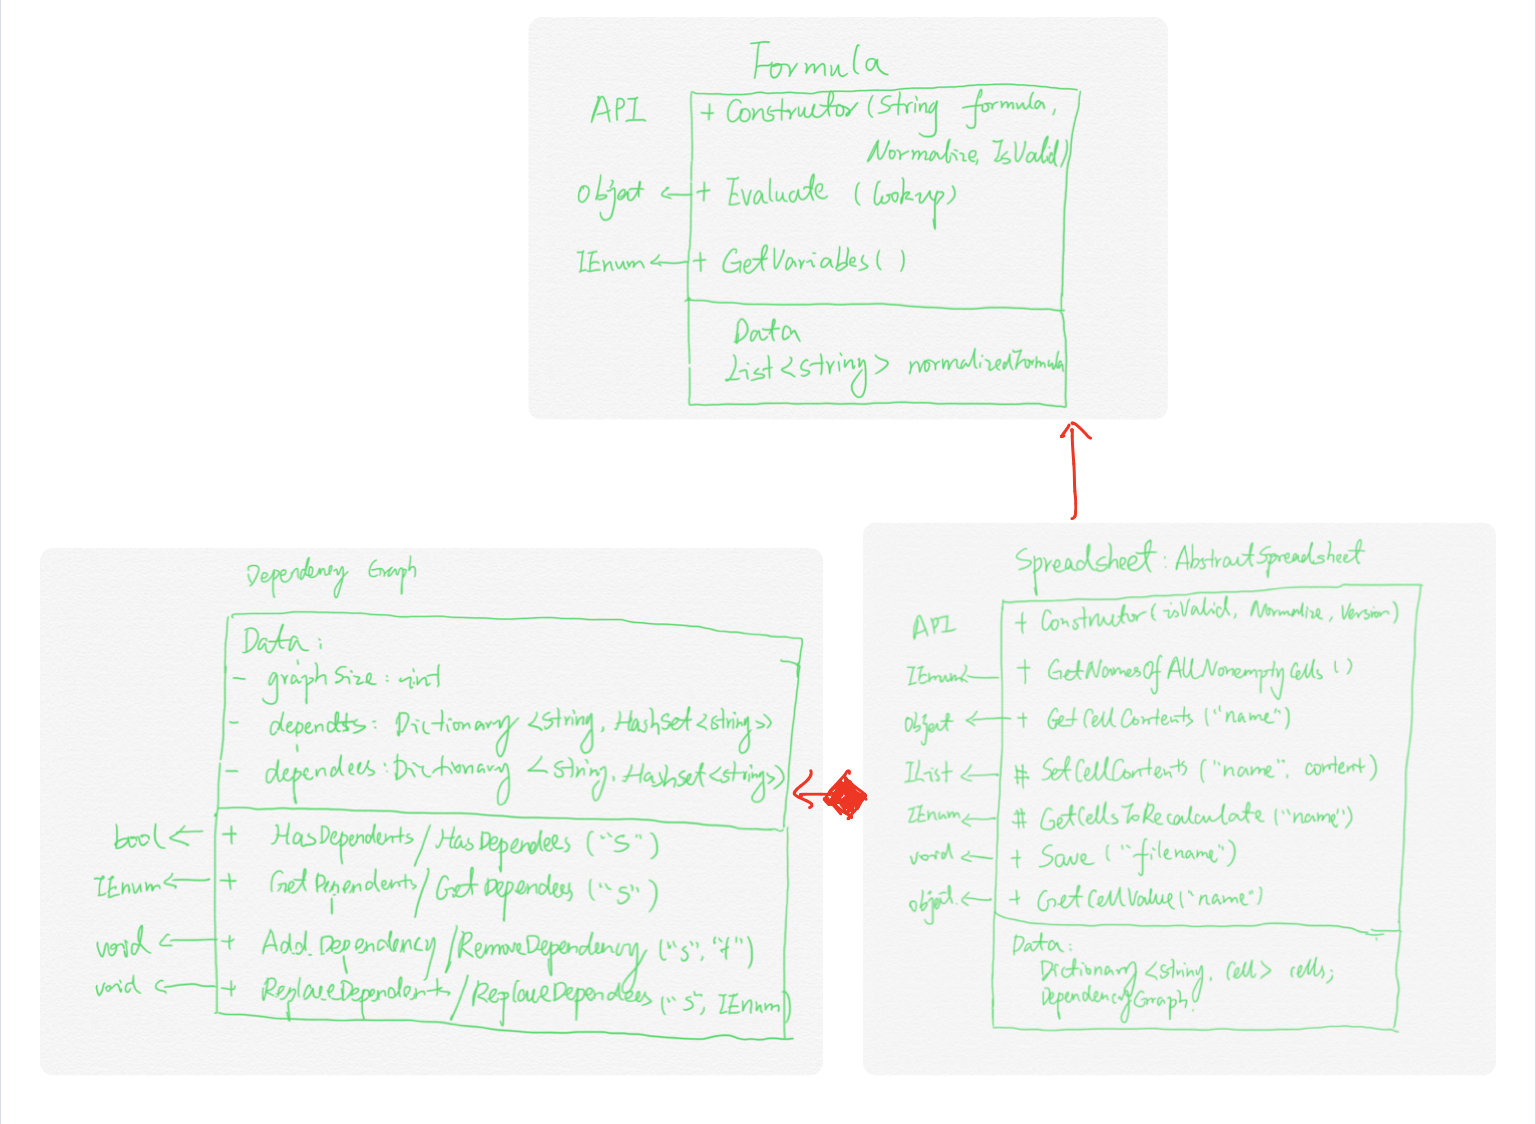 Formula
API + Constructor (String formula,
Normalize, IsValid)
Object ← + Evaluate (Lookup)
IEnum ← + GetVariables ( )
Data
List <string> normalizedFormula
Dependency Graph
Data :
- graphSize : int
- dependts : Dictionary <String, HashSet<string>>
- dependees : Dictionary <String, HashSet<strings>
bool ← + HasDependents / HasDependees ("S")
IEnum ← + GetDependents / GetDependees ("S")
void ← + Add Dependency / RemoveDependency ("S", "t")
void ← + ReplaceDependents / ReplaceDependees ("S", IEnum)
Spreadsheet : AbstractSpreadsheet
API + Constructor (isValid, Normalize, Version)
IEnum ← + GetNamesOfAllNonemptyCells ( )
Object ← + GetCellContents ("name")
IList ← # SetCellContents ("name", content)
IEnum ← # GetCellsToRecalculate ("name")
void ← + Save ("filename")
object ← + GetCellValue ("name")
Data :
Dictionary <string, Cell> cells;
DependencyGraph.